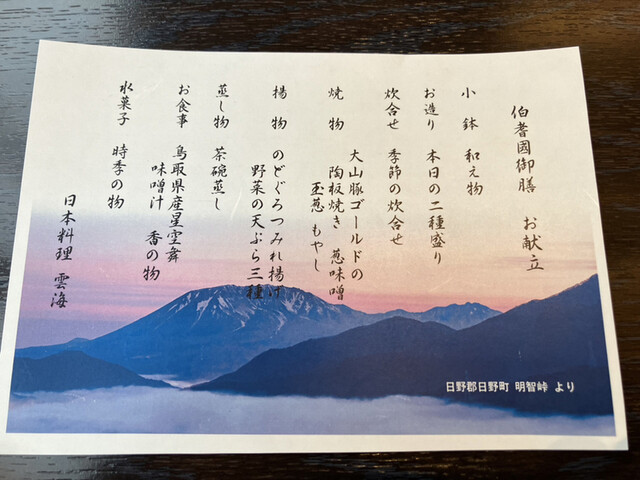 伯耆國御膳 お献立
小鉢 和え物
お造り 本日の二種盛り
炊合せ 季節の炊合せ
焼物 大山豚ゴールドの
陶板焼き 葱味噌
玉葱 もやし
揚物 のどぐろつみれ揚げ
野菜の天ぷら三種
蒸し物 茶碗蒸し
お食事 鳥取県産星空舞
味噌汁 香の物
水菓子 時季の物
日本料理 雲海
日野郡日野町 明智峠 より